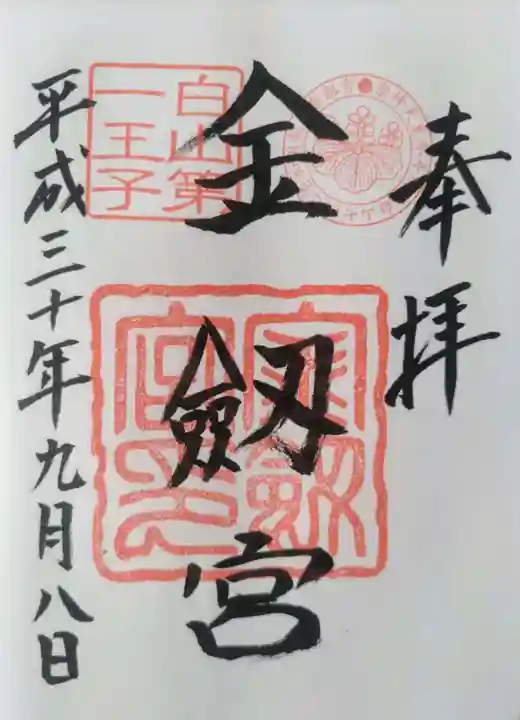 奉拝
金劔宮
平成三十年九月八日
白山第
一王子